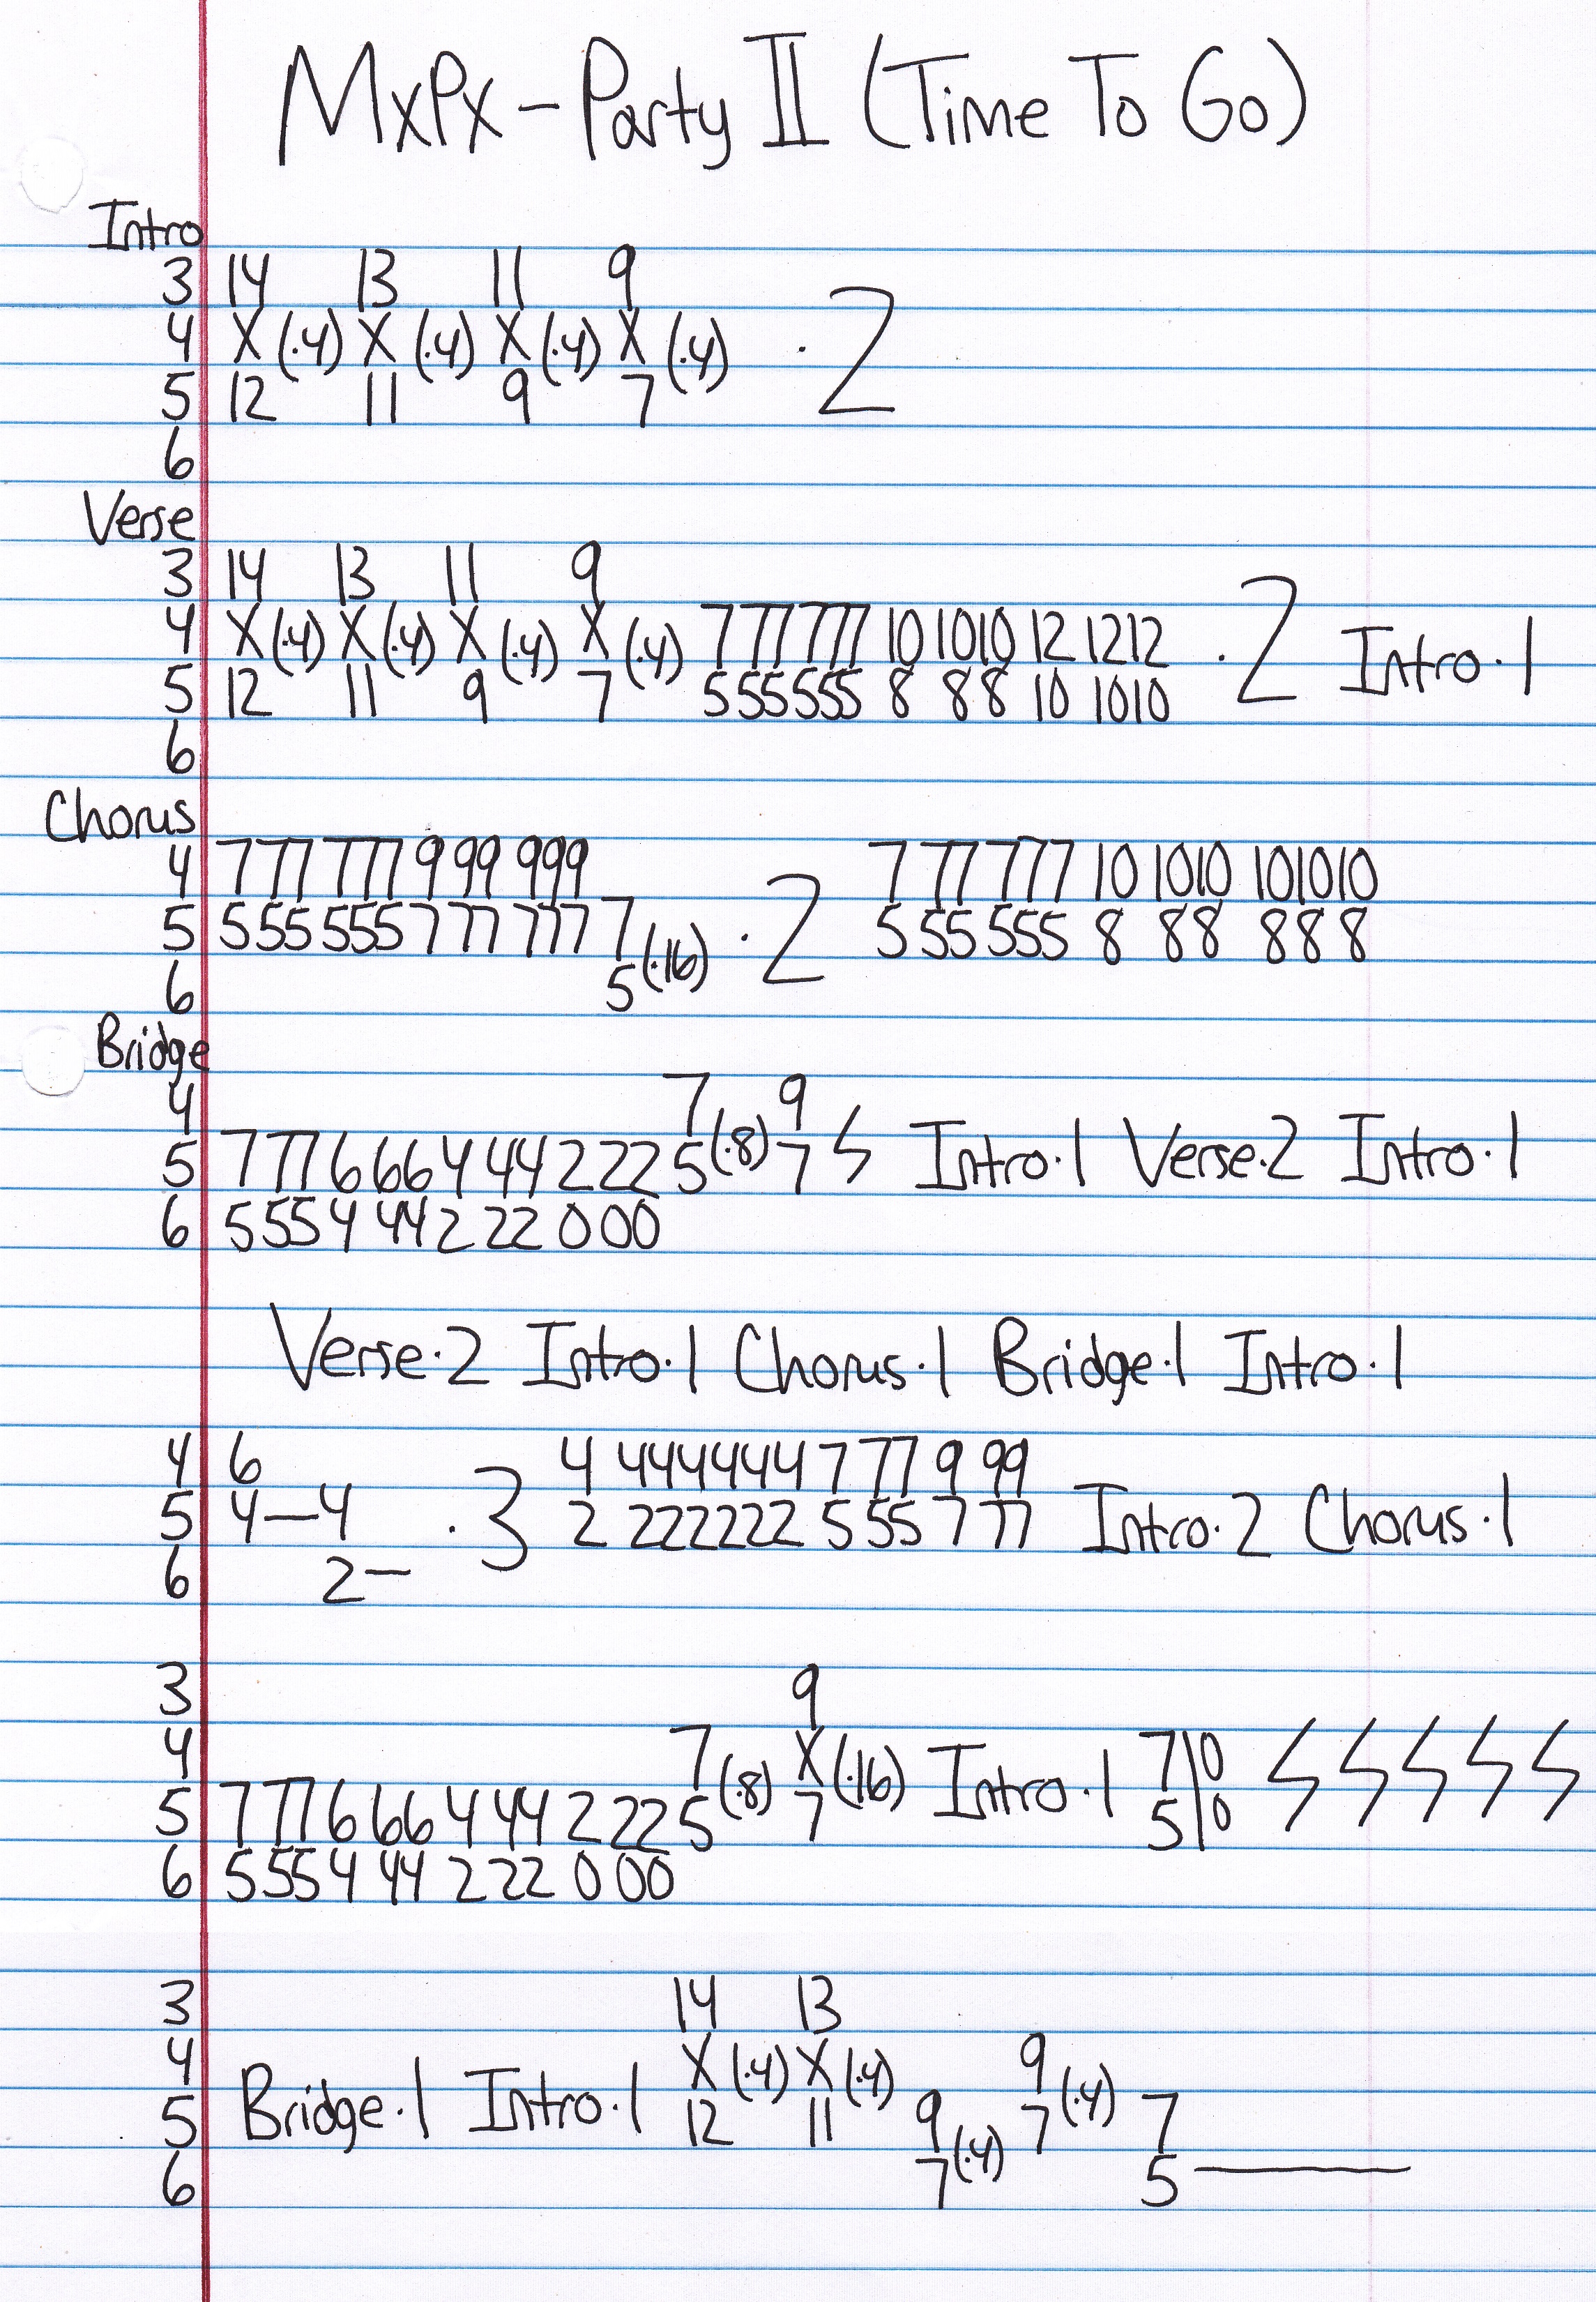 MxPx - Party II (Time To Go)
Intro
3 14 13 11 9
4 X (·4) X (·4) X (·4) X (·4) · 2
5 12 11 9 7
6
Verse
3 14 13 11 9
4 X (·4) X (·4) X (·4) X (·4) 7 77 777 10 1010 12 1212 · 2 Intro·1
5 12 11 9 7 5 55 555 8 88 10 1010
6
Chorus
4 7 77 777 9 99 999 7 77 777 10 1010 101010
5 5 55 555 7 77 777 7 (·16) · 2 5 55 555 8 88 888
6 5
Bridge
4 7 9
5 7 77 6 66 4 44 2 22 5 (·8) 7 ϟ Intro·1 Verse·2 Intro·1
6 5 55 4 44 2 22 0 00
Verse·2 Intro·1 Chorus·1 Bridge·1 Intro·1
4 6 4 444444 7 77 9 99
5 4—4 · 3 2 222222 5 55 7 77 Intro·2 Chorus·1
6 2—
3 9
4 7 X (·16) Intro·1 7|0 ϟ ϟ ϟ ϟ ϟ
5 7 77 6 66 4 44 2 22 5 (·8) 7 5|0
6 5 55 4 44 2 22 0 00
3 14 13
4 X (·4) X (·4) 9 (·4)
5 Bridge·1 Intro·1 12 11 9 7 7
6 7 (·4) 5———